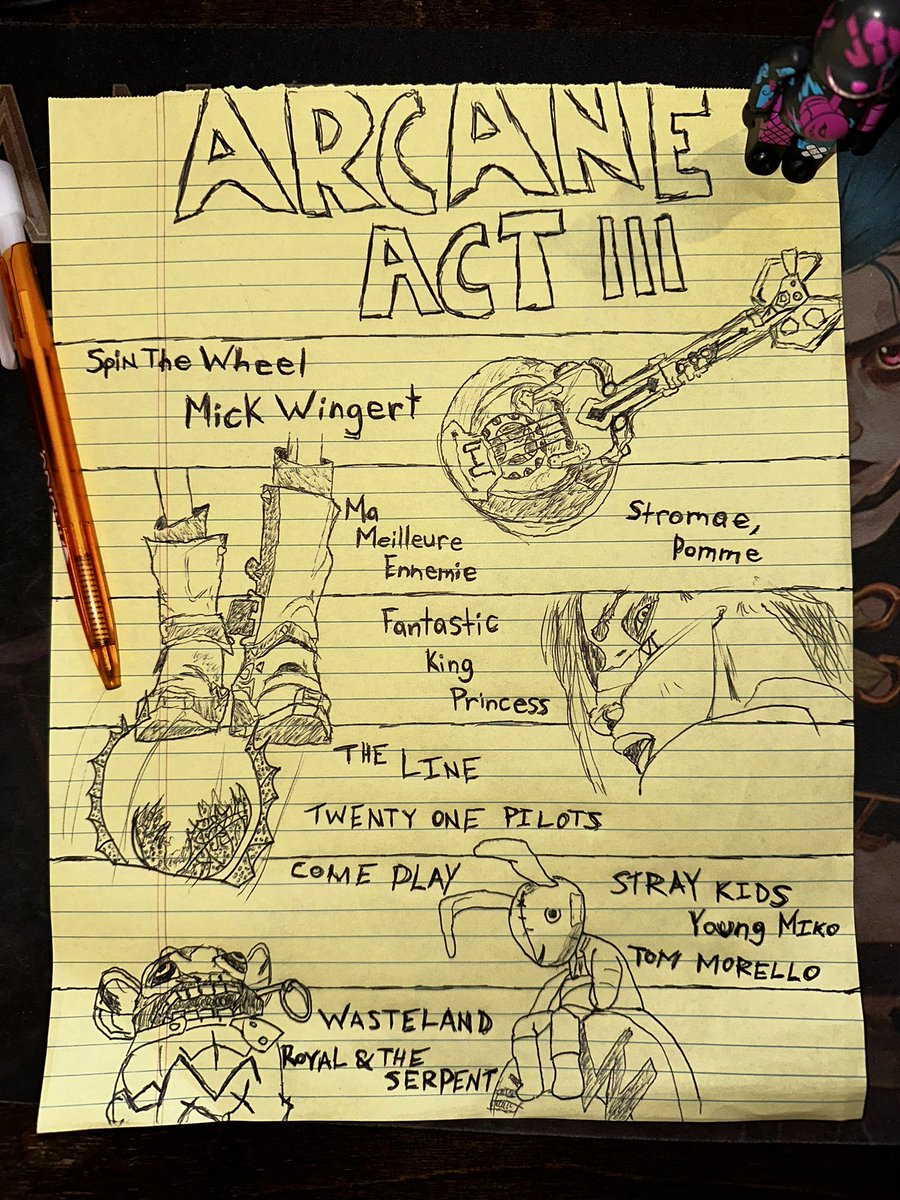 ARCANE
ACT III
Spin The Wheel
Mick Wingert
Ma
Meilleure
Ennemie
Stromae,
Pomme
Fantastic
King
Princess
VI
THE LINE
TWENTY ONE PILOTS
COME PLAY
STRAY KIDS
Young Miko
TOM MORELLO
WASTELAND
ROYAL & THE
SERPENT